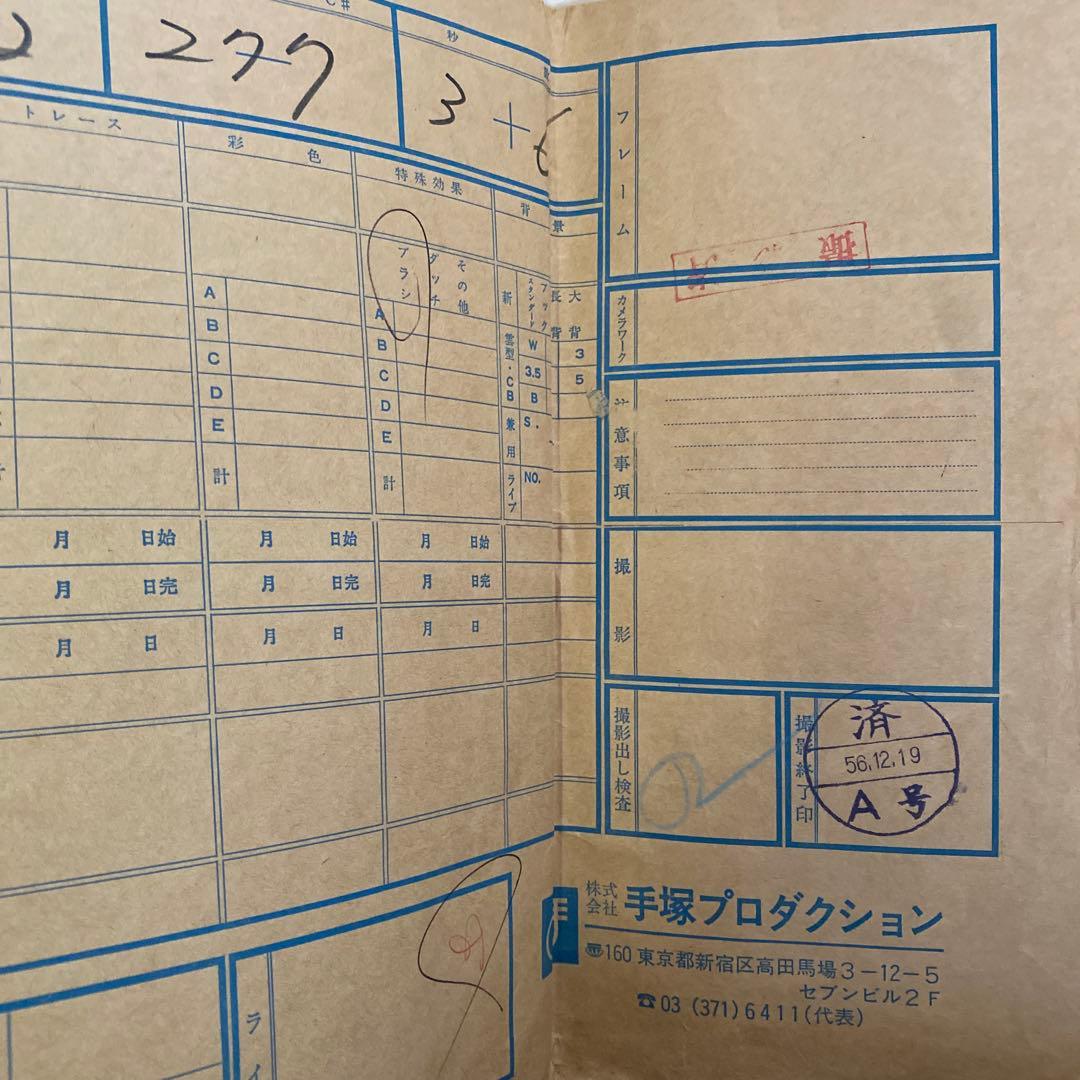 C#
277
秒
3 + 6
トレース
彩色
特殊効果
背景
ブラシ
タッチ
その他
A
B
C
D
E
計
A
B
C
D
E
計
新
雲型・CB
兼用
ライブ
フック
スタンダード
W
3.5
B
S.
NO.
長背
大背
3
5
月 日始
月 日始
月 日始
月 日完
月 日完
月 日完
月 日
月 日
月 日
フレーム
撮
カメラワーク
意事項
撮影
撮影出し検査
撮影終了印
済
56.12.19
A号
株式会社 手塚プロダクション
〒160 東京都新宿区高田馬場3-12-5
セブンビル2F
☎03 (371) 6411(代表)
ライ